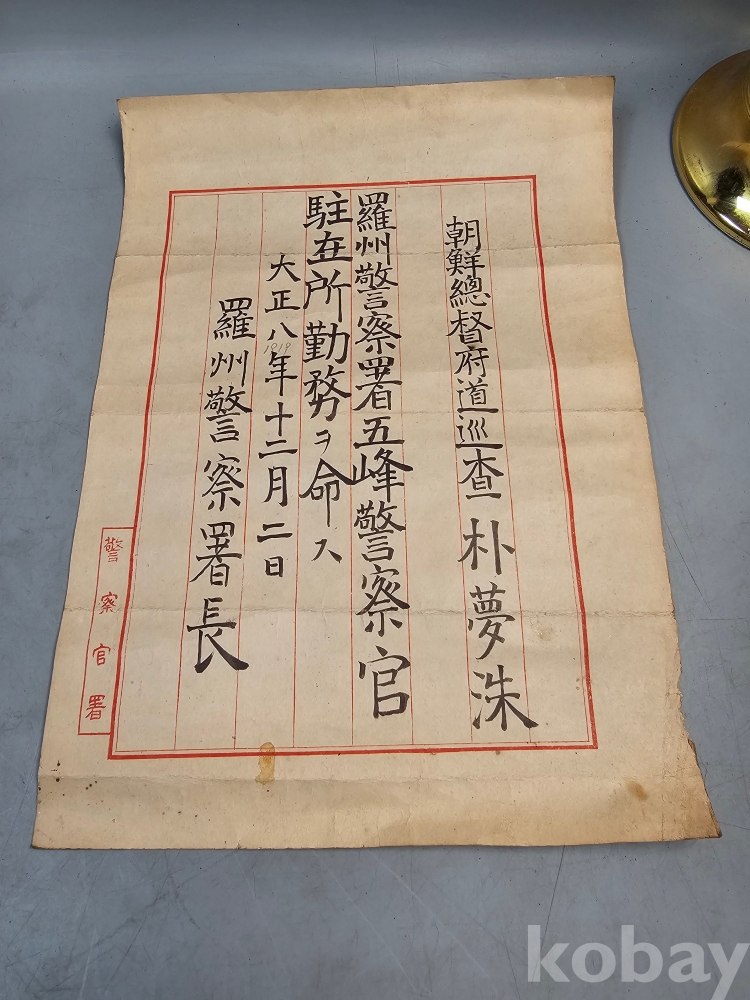 朝鮮總督府道巡查 朴夢洙
羅州警察署五峰警察官
駐在所勤務ヲ命ス
大正八年十二月二日
1919
羅州警察署長
警察官署
kobay